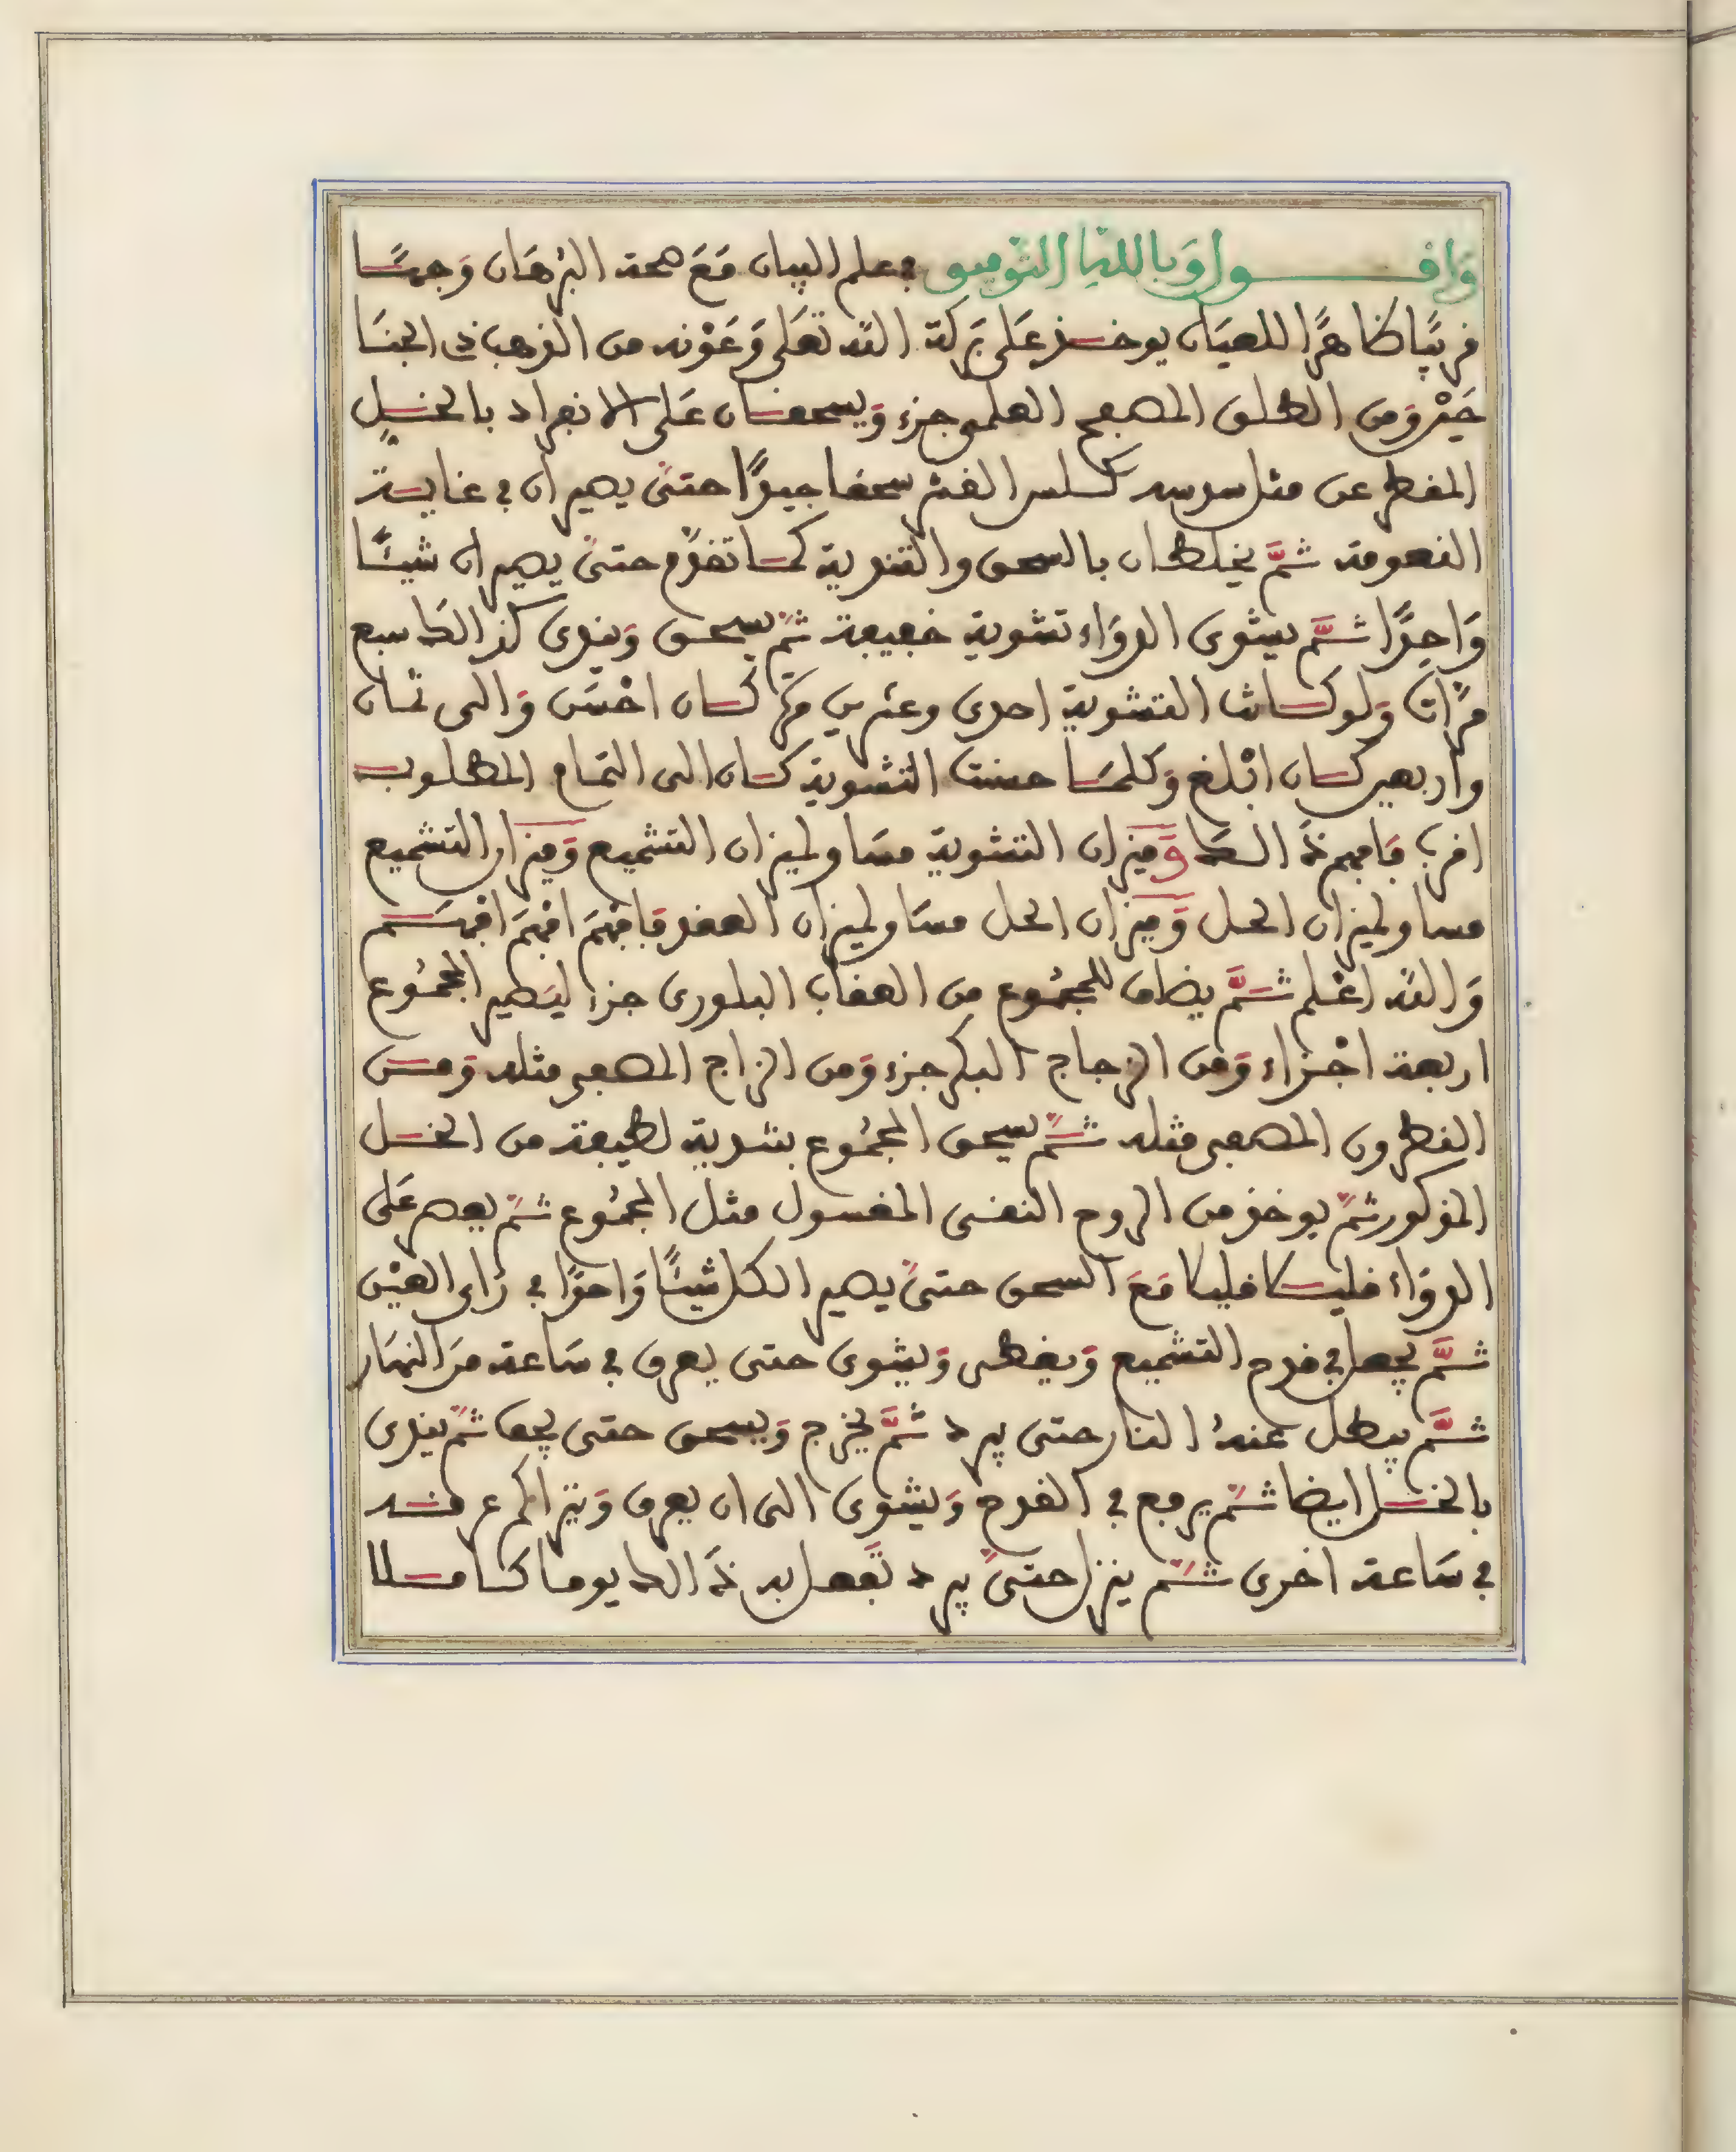 وَاقـــول وَبالله التوفيق في علم البيان مَعَ صحة البرْهَان وَجهًا
قريبًا ظاهرًا للعيَان يوخذ عَلى بَركة الله تعَلى وَعَوْنه من الذهب ذي الجنا
حَيْن وَمن الطلق المصفح العلمي جزء وَيسحقان عَلى الانفراد بالخل
المقطر عن مثل سدسه كلس القشر سحقا جيدًا حتىٰ يصيران في غاية
النعومة ثمَّ يخلطان بالسحق والتندية كما تقدم حتىٰ يصيران شيئًا
وَاحدًا ثمَّ يشوى الدوَاء تشوية خفيفة ثمّ يسحق وَيندى كذالك سبع
مرَّات وَلو كانت التشوية احدى وعشرين مرة كان احْسَن وَالى ثمان
واربعين كان ابْلغ وَكلما حسنت التشوية كان الى التمام المطلوب
اقرب فَافهم ذَالك وَميزان التشوية مسَاو لميزان التشميع وَميزان التشميع
مساو لميزان الحل وَميزان الحل مسَاو لميزان العقد فَافهَمْ افهَمْ افهَم
وَالله اعْلم ثمَّ يضاف للمجمُوع من العقاب البلورى جزء ليَصير المجمُوع
اربعة اجْزاء وَمن الزجاج البكر جزء وَمن الزاج المصفى مثله وَمن
النطرون المصفى مثله ثمّ يسحق المجمُوع بتندية لطيفة من الخل
المذكور ثمّ يوخذ من الروح النقى المغسول مثل المجمُوع ثمّ يعصر عَلى
الدوَاء قليلا قليلا مَعَ السحق حتىٰ يصير الكل شيئًا وَاحدًا في رَاى العَيْن
ثمَّ يجعل في قدح التشميع وَيغطى وَيشوى حتى يعرق في سَاعة مَن النهَار
ثمَّ يبطل عنهُ النار حتى يبرد ثمَّ يخرج وَيسحق حتى يجف ثمّ يندى
بالخل ايضا ثمّ يرجع في القدح وَيشوى الى ان يعرق وَيتراكم عرقه
في سَاعة اخرى ثمّ ينزل حتىٰ يبرد تَفعل به ذَالك يوما كاملا